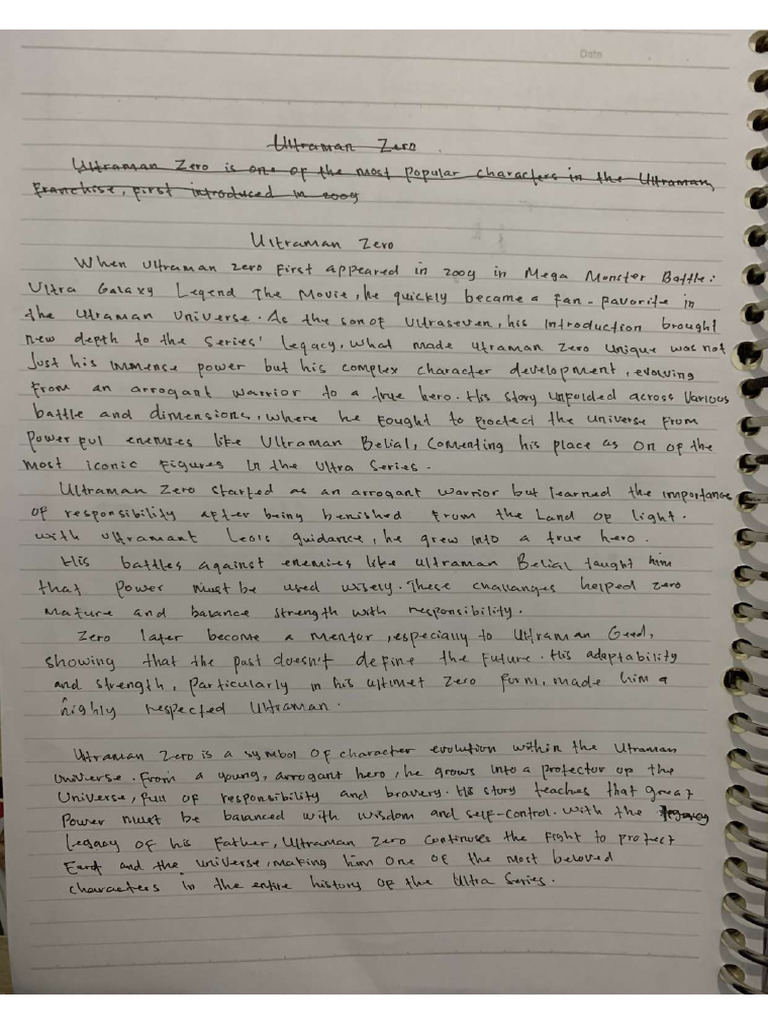 Date
Ultraman Zero
Ultraman Zero is one of the most popular characters in the Ultraman
Franchise, first introduced in 2009
Ultraman Zero
When Ultraman zero first appeared in 2009 in Mega Monster Battle:
Ultra Galaxy Legend The Movie, he quickly became a fan-favorite in
the Ultraman Universe. As the son of Ultraseven, his introduction brought
new depth to the series' legacy. What made utraman Zero unique was not
Just his immense power but his complex character development, evolving
from an arrogant warrior to a true hero. His story unfolded across various
battle and dimensions, where he fought to proctect the universe from
powerful enemies like Ultraman Belial, Comenting his place as on of the
most iconic figures in the Ultra Series.
Ultraman Zero started as an arrogant warrior but learned the importance
of responsibility after being benished from the Land of light.
with ultramant Leo's guidance, he grew into a true hero.
His battles against enemies like ultraman Belial taught him
that power must be used wisely. These challanges helped zero
mature and balance strength with responsibility.
Zero later become a mentor, especially to Ultraman Geed,
showing that the past doesn't define the future. His adaptability
and strength, particularly in his ultimet Zero form, made him a
highly respected Ultraman.
Utraman Zero is a symbol of character evolution within the Utraman
universe. From a young, arrogant hero, he grows into a protector of the
Universe, full of responsibility and bravery. His story teaches that great
Power must be balanced with wisdom and self-control. With the
legacy of his father, Ultraman Zero continues the fight to protect
Eart and the universe, making him one of the most beloved
characters in the entire history of the Ultra Series.